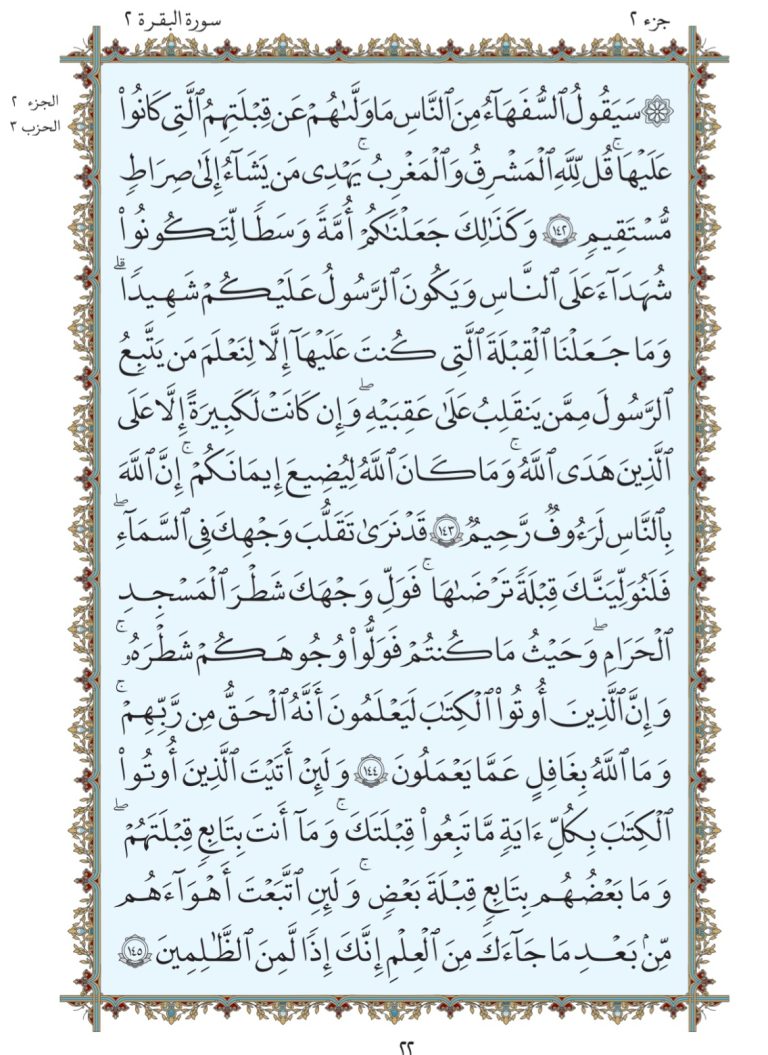 جزء ٢
سورة البقرة ٢
الجزء ٢
الحزب ٣
۞ سَيَقُولُ ٱلسُّفَهَآءُ مِنَ ٱلنَّاسِ مَا وَلَّىٰهُمْ عَن قِبْلَتِهِمُ ٱلَّتِى كَانُوا۟
عَلَيْهَا ۚ قُل لِّلَّهِ ٱلْمَشْرِقُ وَٱلْمَغْرِبُ ۚ يَهْدِى مَن يَشَآءُ إِلَىٰ صِرَاطٍ
مُّسْتَقِيمٍ ١٤٢ وَكَذَٰلِكَ جَعَلْنَٰكُمْ أُمَّةً وَسَطًا لِّتَكُونُوا۟
شُهَدَآءَ عَلَى ٱلنَّاسِ وَيَكُونَ ٱلرَّسُولُ عَلَيْكُمْ شَهِيدًا ۗ
وَمَا جَعَلْنَا ٱلْقِبْلَةَ ٱلَّتِى كُنتَ عَلَيْهَآ إِلَّا لِنَعْلَمَ مَن يَتَّبِعُ
ٱلرَّسُولَ مِمَّن يَنقَلِبُ عَلَىٰ عَقِبَيْهِ ۖ وَإِن كَانَتْ لَكَبِيرَةً إِلَّا عَلَى
ٱلَّذِينَ هَدَى ٱللَّهُ ۚ وَمَا كَانَ ٱللَّهُ لِيُضِيعَ إِيمَٰنَكُمْ ۚ إِنَّ ٱللَّهَ
بِٱلنَّاسِ لَرَءُوفٌ رَّحِيمٌ ١٤٣ قَدْ نَرَىٰ تَقَلُّبَ وَجْهِكَ فِى ٱلسَّمَآءِ ۖ
فَلَنُوَلِّيَنَّكَ قِبْلَةً تَرْضَىٰهَا ۚ فَوَلِّ وَجْهَكَ شَطْرَ ٱلْمَسْجِدِ
ٱلْحَرَامِ ۖ وَحَيْثُ مَا كُنتُمْ فَوَلُّوا۟ وُجُوهَكُمْ شَطْرَهُۥ ۗ
وَإِنَّ ٱلَّذِينَ أُوتُوا۟ ٱلْكِتَٰبَ لَيَعْلَمُونَ أَنَّهُ ٱلْحَقُّ مِن رَّبِّهِمْ ۗ
وَمَا ٱللَّهُ بِغَٰفِلٍ عَمَّا يَعْمَلُونَ ١٤٤ وَلَئِنْ أَتَيْتَ ٱلَّذِينَ أُوتُوا۟
ٱلْكِتَٰبَ بِكُلِّ ءَايَةٍ مَّا تَبِعُوا۟ قِبْلَتَكَ ۚ وَمَآ أَنتَ بِتَابِعٍ قِبْلَتَهُمْ ۚ
وَمَا بَعْضُهُم بِتَابِعٍ قِبْلَةَ بَعْضٍ ۚ وَلَئِنِ ٱتَّبَعْتَ أَهْوَآءَهُم
مِّنۢ بَعْدِ مَا جَآءَكَ مِنَ ٱلْعِلْمِ إِنَّكَ إِذًا لَّمِنَ ٱلظَّٰلِمِينَ ١٤٥
٢٢